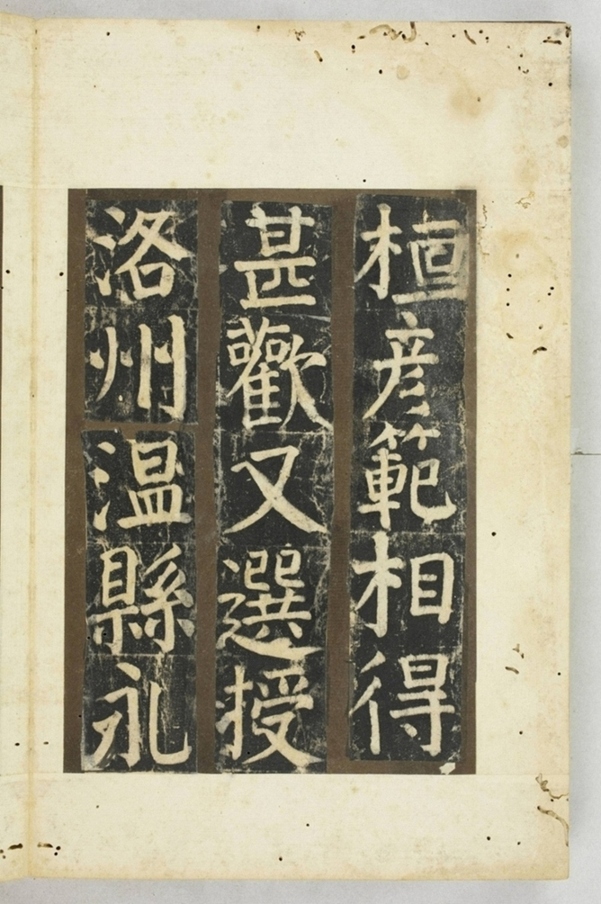 桓彦範相得
甚歡又選授
洛州温縣永